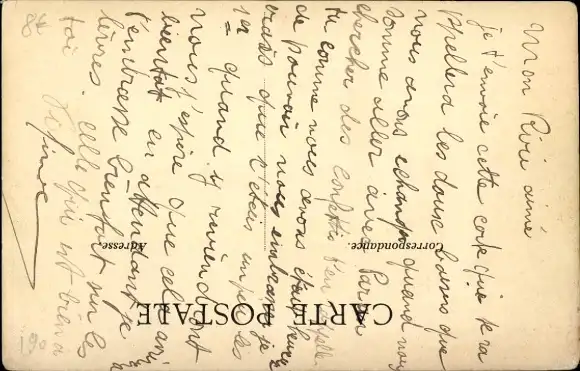 Mon Riri aimé
je t'envoie cette carte qui te ra
ppellera les doux baisers que
nous avons échangé quand nous
somme aller avec Parain
chercher des confettis t'en rappelle
tu comme nous avons étais heureux
de pouvoir nous embrasser je
crois que t'étais un peu
quand y reviendront
nous j'espère que cel
bientot en attendant je
t'embrasse bien fort sur les
lèvres. celle qui est bien a
toi
CARTE POSTALE
Correspondance.
Adresse.
190